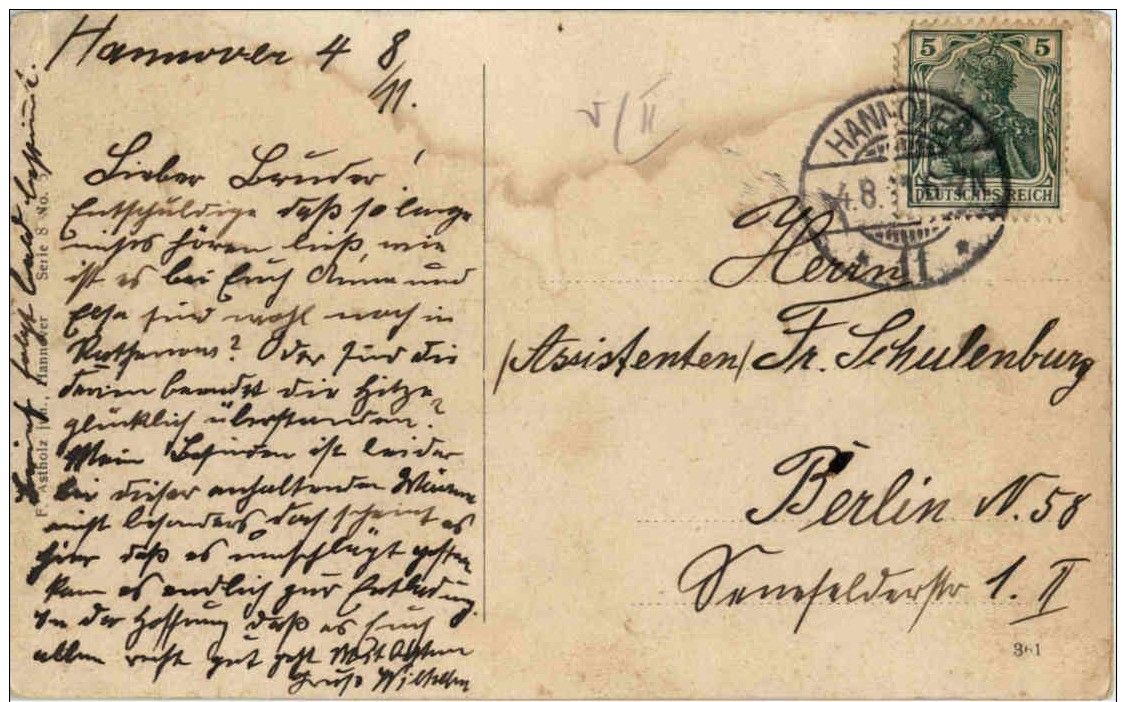 Hannover 4 8
/11.
Lieber Bruder!
Entschuldige daß so lange
nichts hören ließ, wie
ist es bei Euch Anna und
Else sind wohl noch in
Rathenow? Oder sind die
daheim die Hitze
glücklich überstanden?
Mein Befinden ist leider
bei dieser anhaltenden Wärme
nicht besonders doch scheint es
hier daß es umschlägt gestern
kam es endlich zur Entladung.
In der Hoffnung daß es Euch
allen recht gut geht Mit
Gruß Wilhelm
folgt bald bestimmt.
F. Astholz jun., Hannover Serie 8 No.
v/II
5 5
DEUTSCHES REICH
HANNOVER
4.8.
11
Herrn
(Assistenten) Fr. Schulenburg
Berlin N. 58
Senefelderstr 1. II
361